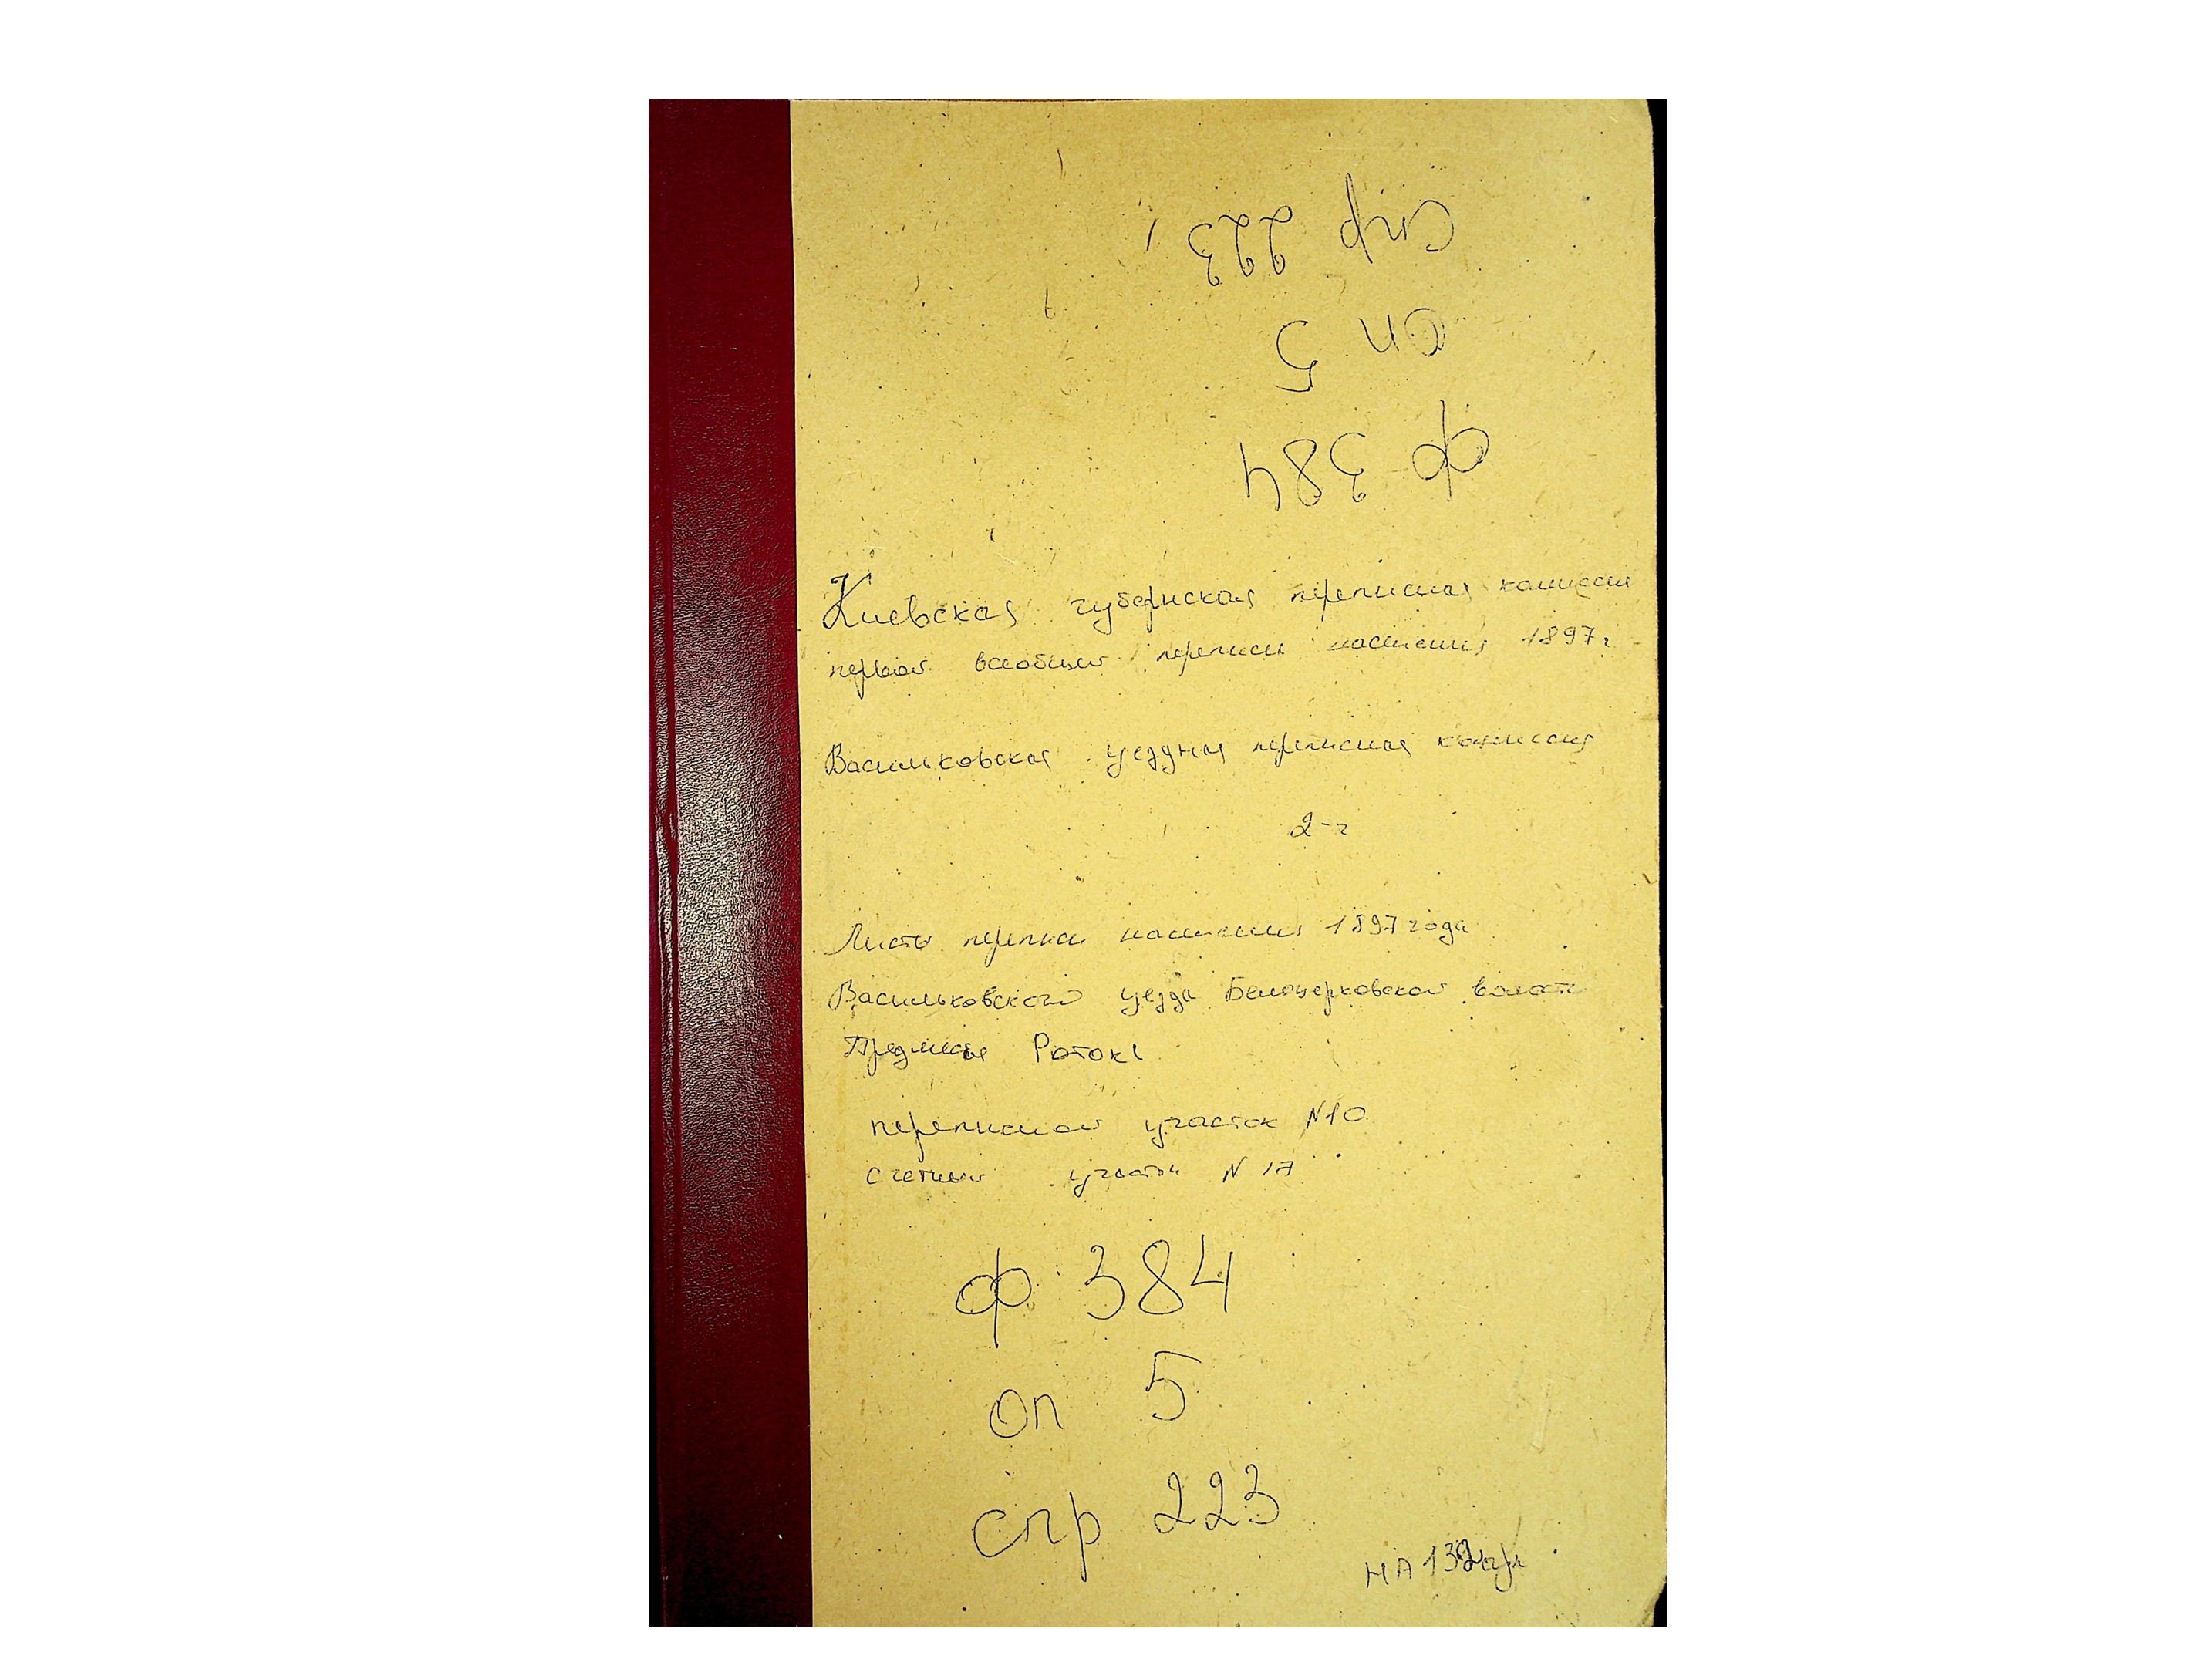 спр 223
оп 5
ф 384
Киевская губернская переписная комиссия
первой всеобщей переписи населения 1897 г
Васильковская уездная переписная комиссия
2-г
Листы переписи населения 1897 года
Васильковского уезда Белоцерковской волости
Предместья Роток
переписной участок N10
счетный участок N 17
ф 384
оп 5
спр 223
НА 132